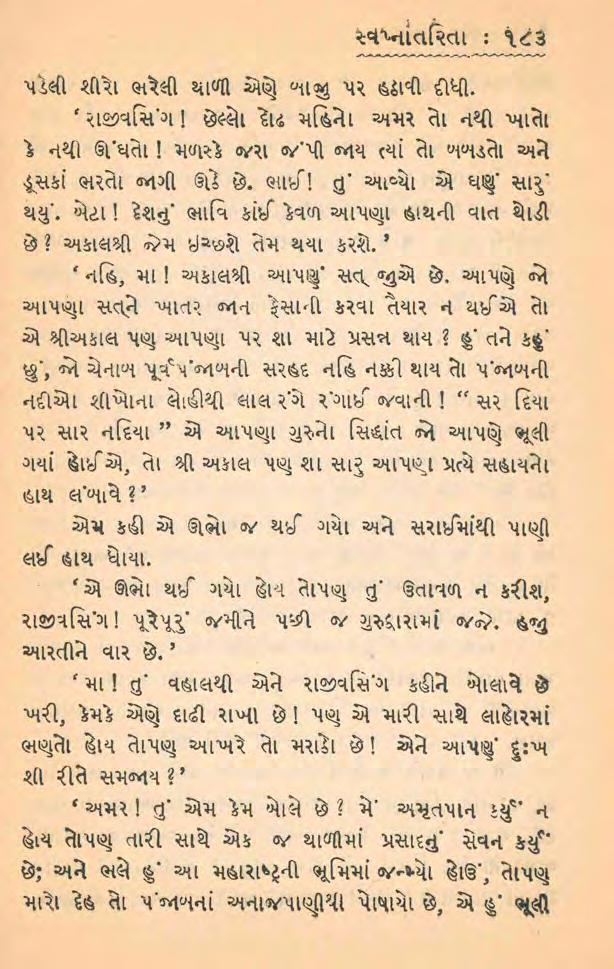 સ્વપ્નાંતરિતા : ૧૮૩
પડેલી શીરો ભરેલી થાળી એણે બાજુ પર હઠાવી દીધી.
‘રાજીવસિંગ! છેલ્લો દોઢ મહિનો અમર તો નથી ખાતો
કે નથી ઊંઘતો! મળસ્કે જરા જંપી જાય ત્યાં તો બબડતો અને
ડૂસકાં ભરતો જાગી ઊઠે છે. ભાઈ! તું આવ્યો એ ઘણું સારું
થયું. બેટા! દેશનું ભાવિ કાંઈ કેવળ આપણા હાથની વાત થોડી
છે? અકાલશ્રી જેમ ઇચ્છશે તેમ થયા કરશે.’
‘નહિ, મા! અકાલશ્રી આપણું સત્ જુએ છે. આપણે જો
આપણા સત્‌ને ખાતર જાન ફેસાની કરવા તૈયાર ન થઈએ તો
એ શ્રીઅકાલ પણ આપણા પર શા માટે પ્રસન્ન થાય? હું તને કહું
છું, જો ચેનાબ પૂર્વપંજાબની સરહદ નહિ નક્કી થાય તો પંજાબની
નદીઓ શીખોના લોહીથી લાલ રંગે રંગાઈ જવાની! “સર દિયા
પર સાર નદિયા” એ આપણા ગુરુનો સિદ્ધાંત જો આપણે ભૂલી
ગયાં હોઈએ, તો શ્રી અકાલ પણ શા સારુ આપણા પ્રત્યે સહાયનો
હાથ લંબાવે?’
એમ કહી એ ઊભો જ થઈ ગયો અને સરાઈમાંથી પાણી
લઈ હાથ ધોયા.
‘એ ઊભો થઈ ગયો હોય તોપણ તું ઉતાવળ ન કરીશ,
રાજીવસિંગ! પૂરેપૂરું જમીને પછી જ ગુરુદ્વારામાં જજે. હજુ
આરતીને વાર છે.’
‘મા! તું વહાલથી એને રાજીવસિંગ કહીને બોલાવે છે
ખરી, કેમકે એણે દાઢી રાખી છે! પણ એ મારી સાથે લાહોરમાં
ભણતો હોય તોપણ આખરે તો મરાઠો છે! એને આપણું દુઃખ
શી રીતે સમજાય?’
‘અમર! તું એમ કેમ બોલે છે? મેં અમૃતપાન કર્યું ન
હોય તોપણ તારી સાથે એક જ થાળીમાં પ્રસાદનું સેવન કર્યું
છે; અને ભલે હું આ મહારાષ્ટ્રની ભૂમિમાં જન્મ્યો હોઉં, તોપણ
મારો દેહ તો પંજાબનાં અનાજપાણીથી પોષાયો છે, એ હું ભૂલી